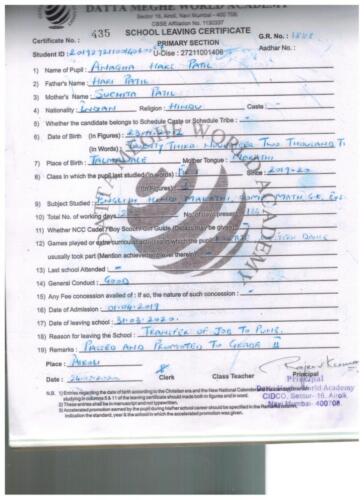 DATTA MEGHE WORLD ACADEMY
Sector 16, Airoli, Navi Mumbai - 400 708.
CBSE Affiliation No. 1130337
Certificate No. : 435 SCHOOL LEAVING CERTIFICATE G.R. No. :
PRIMARY SECTION
Student ID : U-Dise : 27211001408 Aadhar No. :
1) Name of Pupil : ANAGHA HARI PATIL
2) Father's Name HARI PATIL
3) Mother's Name : SUCHITA PATIL
4) Nationality : INDIAN Religion : HINDU Caste : -
5) Whether the candidate belongs to Schedule Caste or Schedule Tribe : -
6) Date of Birth (In Figures) :
(In Words) : TWENTY THIRD NOVEMBER TWO THOUSAND
7) Place of Birth : Mother Tongue : MARATHI
8) Class in which the pupil last studied (In words) Since : 2019-20
(In Figures) :
9) Subject Studied : ENGLISH HINDI MARATHI, COMP MATH G.K. EVS
10) Total No. of working days No. of days present
11) Whether NCC Cadet / Boy Scout / Girl Guide (Details may be given)
12) Games played or extra curricular activities in which the pupil
usually took part (Mention achievement level therein) : -
13) Last school Attended : -
14) General Conduct : GOOD
15) Any Fee concession availed of : If so, the nature of such concession : -
16) Date of Admission : 01.04.2019
17) Date of leaving school : 31.03.2020.
18) Reason for leaving the School : TRANSFER OF JOB TO PUNE.
19) Remarks : PASSED AND PROMOTED TO GRADE II
Place : AIROLI
Date : Clerk Class Teacher Principal
Principal
Datta Meghe World Academy
CIDCO, Sector- 16, Airoli,
Navi Mumbai- 400708
N.B. 1) Entries regarding the date of birth according to the Christian era and the New National Calendar
studying in columns 5 & 11 of the leaving certificate should made both in figures and in word.
2) These entries shall be in manuscript and not typewritten.
3) Accelerated promotion earned by the pupil during his/her school career should be specified in the Remarks column
indication the standard, year & is which the accelerated promotion was given.
DATTA MEGHE WORLD ACADEMY